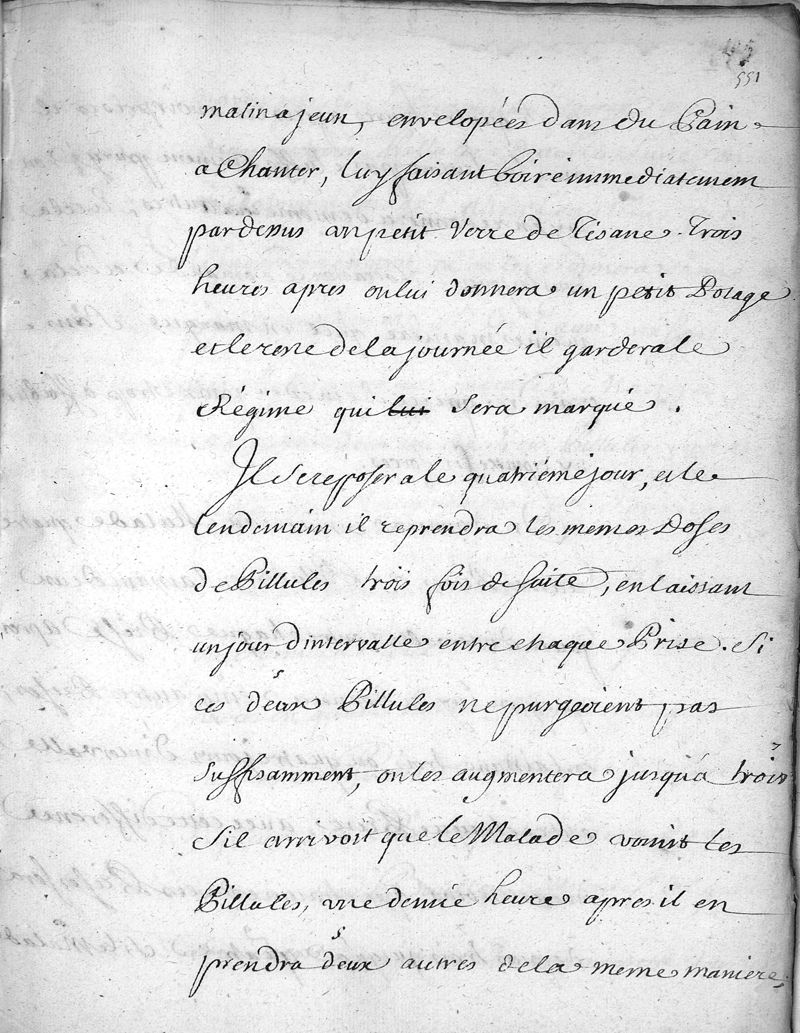 551
matin a jeun, envelopées dans du Pain
a Chanter, luy faisant boire immediatement
par dessus un petit Verre de Tisane. Trois
heures apres on lui donnera un petit Potage
et le reste de la journée il gardera le
Régime qui lui sera marqué.
Il se reposera le quatriéme jour, et le
lendemain il reprendra les memes Doses
de Pillules trois fois de suite, en laissant
un jour d'intervalle entre chaque Prise. Si
ces deux Pillules ne purgeoient pas
suffisamment, on les augmentera jusqu'a trois
S'il arrivoit que le Malade vomit les
Pillules, une demie heure apres il en
prendra deux autres de la meme maniere;